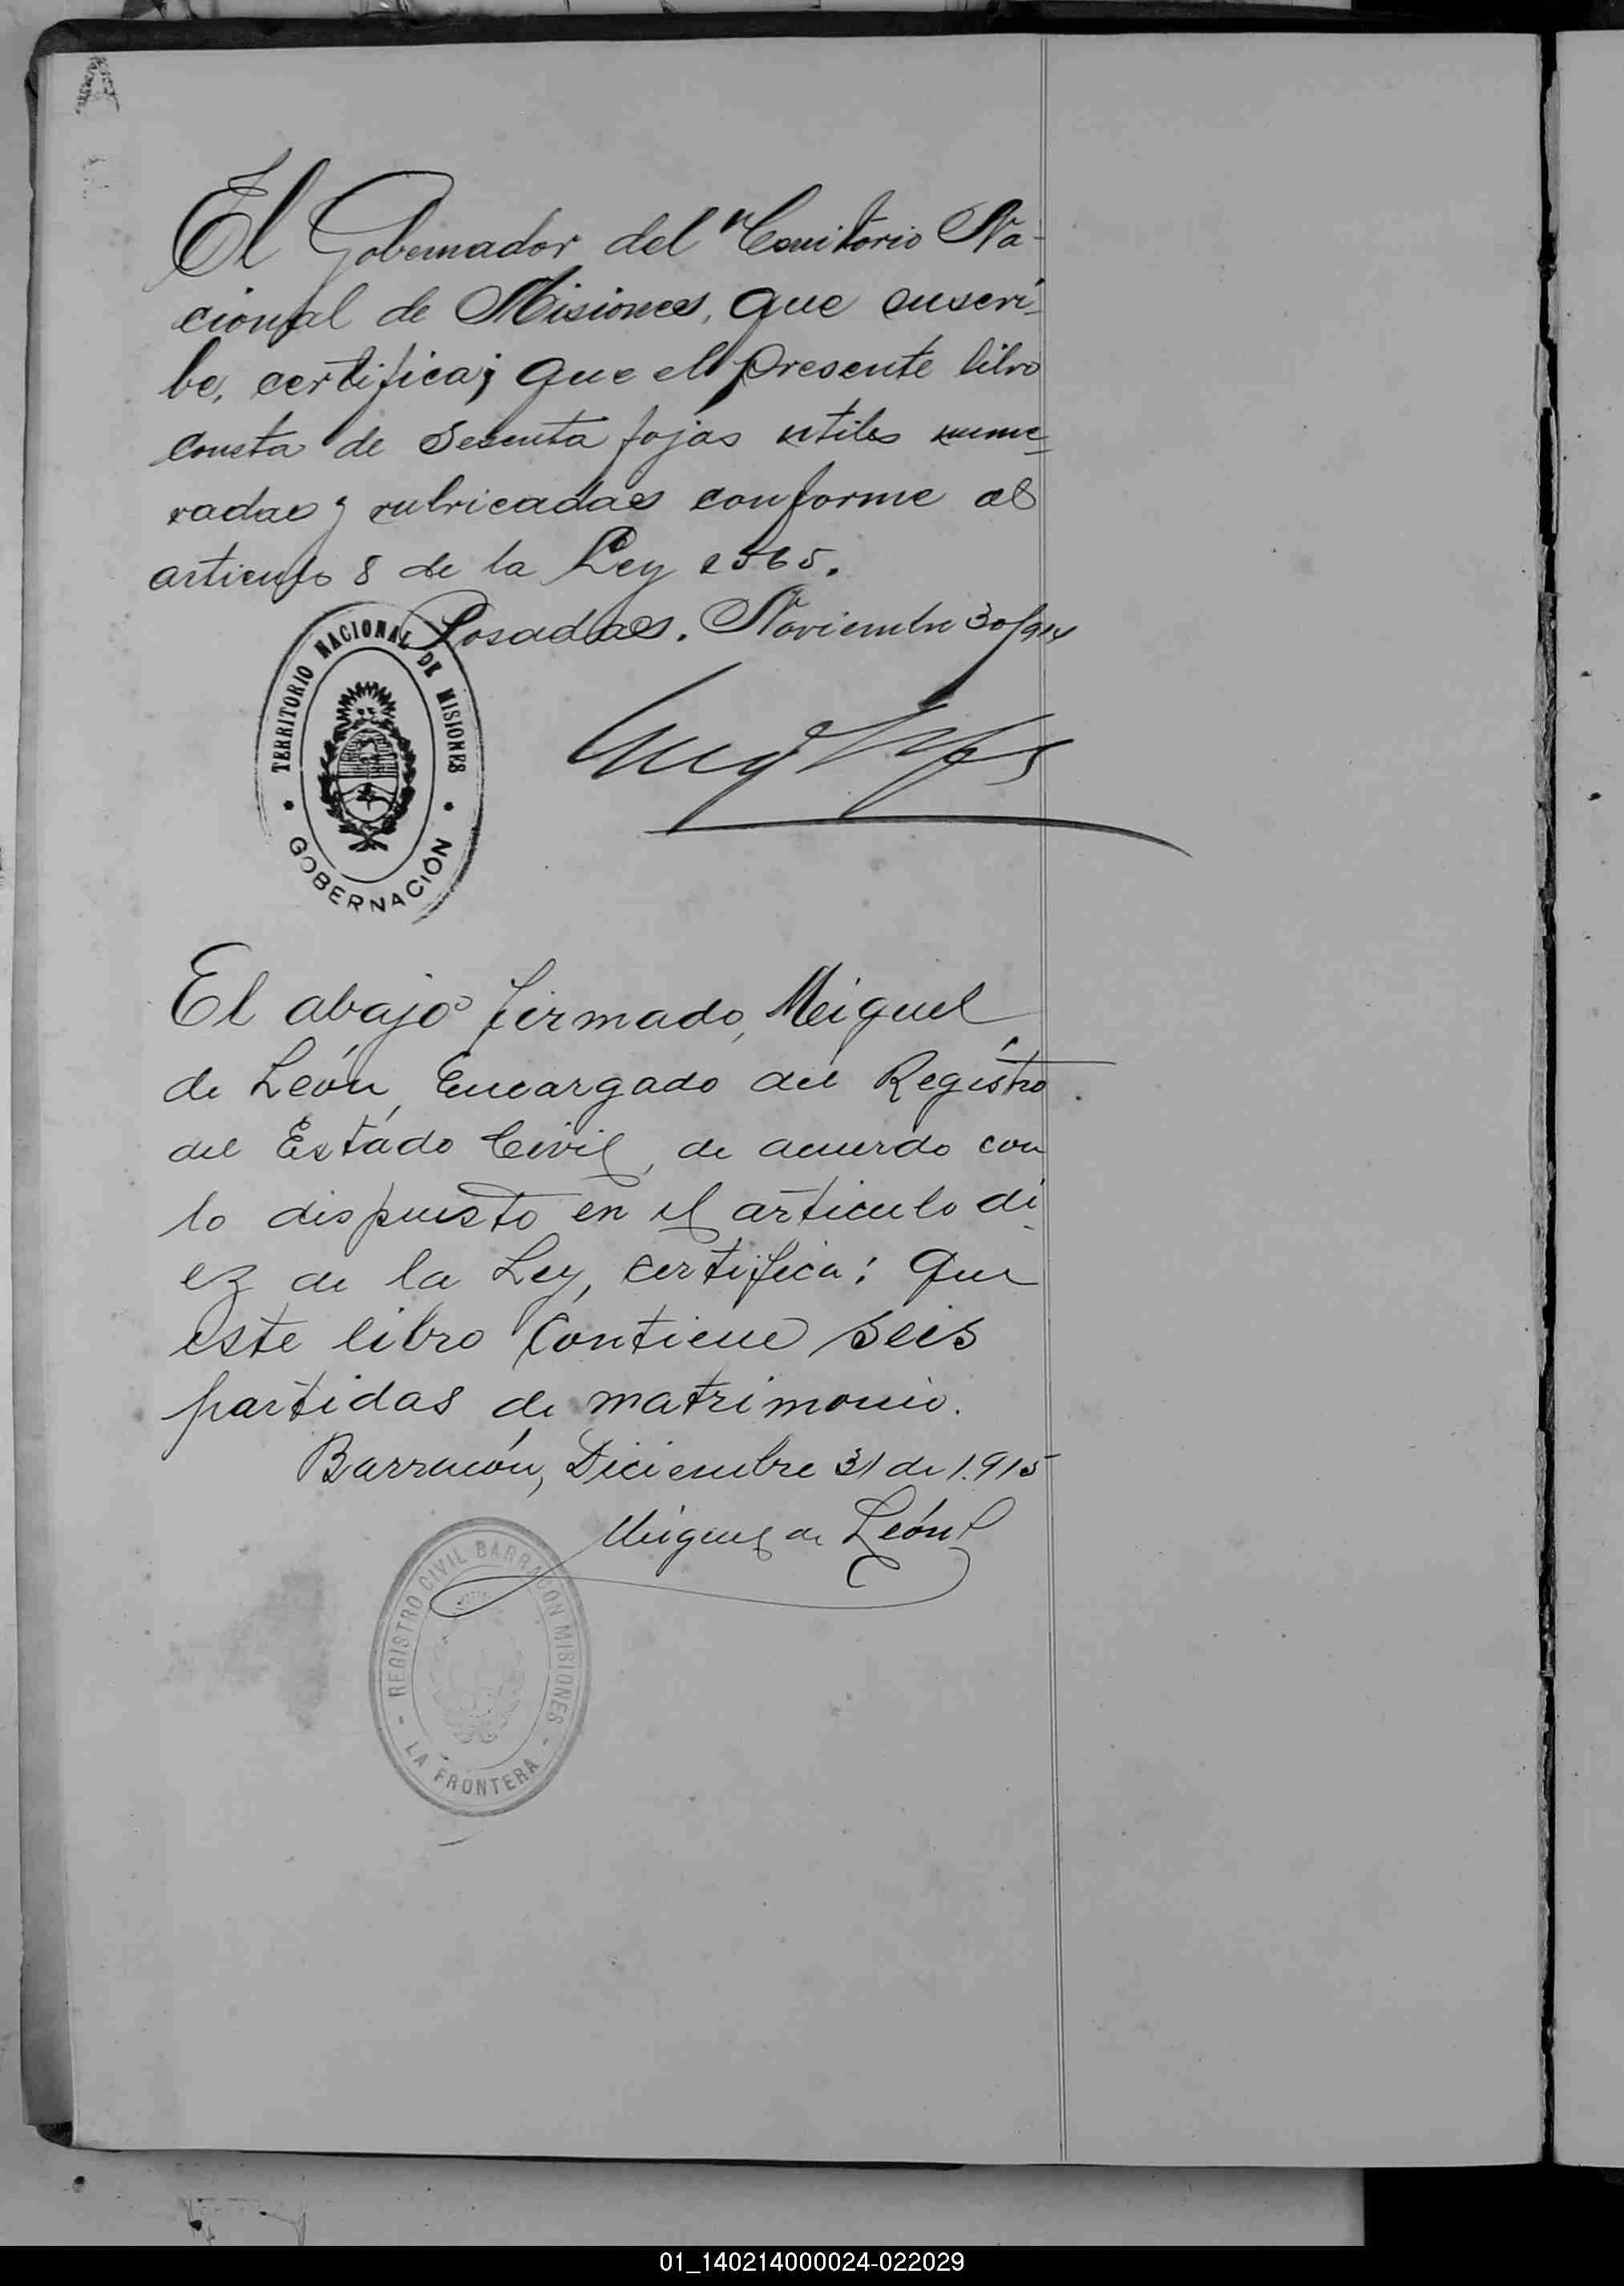 El Gobernador del Territorio Na-
cional de Misiones, que suscri-
be, certifica; que el presente libro
consta de sesenta fojas utiles nume-
radas y rubricadas conforme al
articulo 8 de la Ley 1565.
Posadas. Noviembre 30/914
TERRITORIO NACIONAL DE MISIONES
GOBERNACIÓN
El abajo firmado, Miguel
de León, Encargado del Registro
del Estado Civil, de acuerdo con
lo dispuesto en el articulo di-
ez de la Ley, certifica: Que
este libro contiene seis
partidas de matrimonio.
Barracón, Diciembre 31 de 1.915
Miguel de León
REGISTRO CIVIL BARRACON MISIONES
LA FRONTERA
01_140214000024-022029